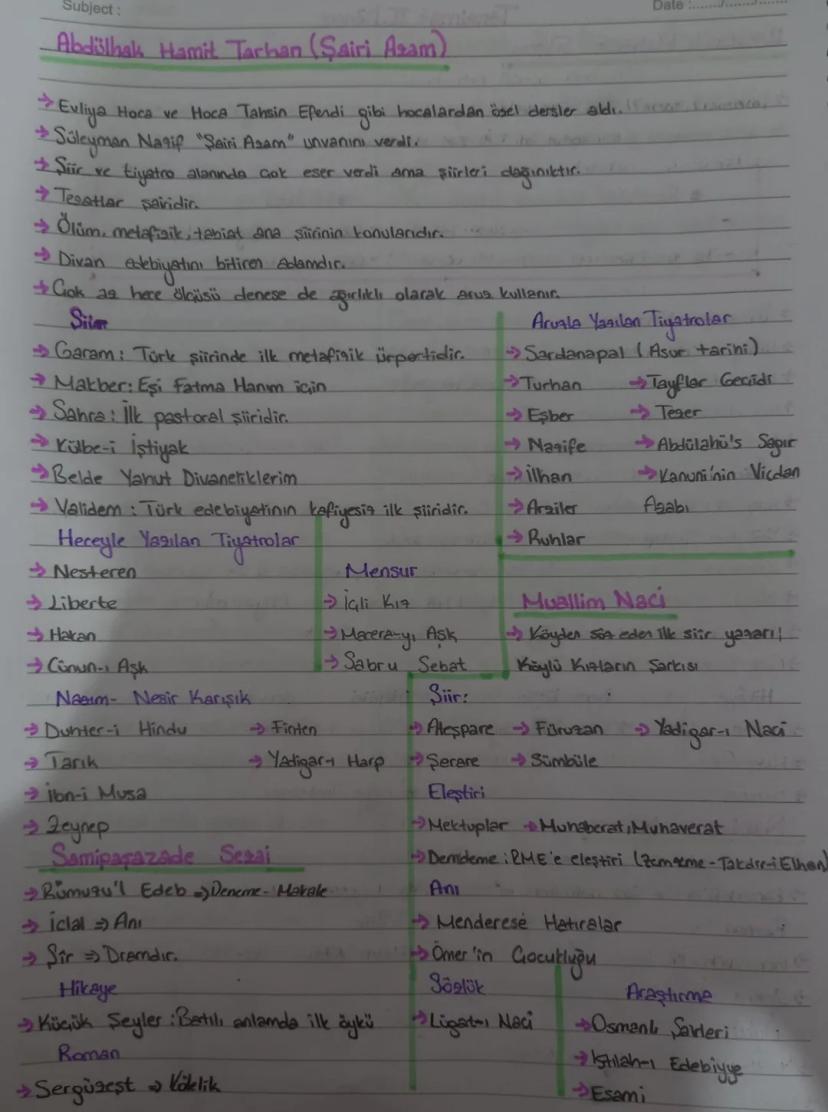 Subject :
Date :
Abdülhak Hamit Tarhan (Şairi Azam)
→ Evliya Hoca ve Hoca Tahsin Efendi gibi hocalardan özel dersler aldı.
→ Süleyman Nazif "Şairi Azam" unvanını verdi.
→ Şiir ve tiyatro alanında çok eser verdi ama şiirleri dağınıktır.
→ Tezatlar şairidir.
→ Ölüm, metafizik, tabiat ana şiirinin konularıdır.
→ Divan edebiyatını bitiren adamdır.
→ Çok az hece ölçüsü denese de ağırlıklı olarak aruz kullanır.
Şiir
→ Garam: Türk şiirinde ilk metafizik ürpertidir.
→ Makber: Eşi Fatma Hanım için
→ Sahra: İlk pastoral şiiridir.
→ Külbe-i İştiyak
→ Belde Yahut Divaneliklerim
→ Validem: Türk edebiyatının kafiyesiz ilk şiiridir.
Aruzla Yazılan Tiyatrolar
→ Sardanapal (Asur tarihi)
→ Turhan → Tayflar Geçidi
→ Eşber → Tezer
→ Nazife → Abdülahü's Sagir
→ İlhan → Kanuni'nin Vicdan
→ Arziler Azabı
→ Ruhlar
Heceyle Yazılan Tiyatrolar
→ Nesteren
→ Liberte
→ Hakan
→ Cünun-ı Aşk
Mensur
→ İçli Kız
→ Macera-yı Aşk
→ Sabru Sebat
Nazım- Nesir Karışık
→ Duhter-i Hindu → Finten
→ Tarık → Yadigar-ı Harp
→ İbn-i Musa
→ Zeynep
Samipaşazade Sezai
→ Rümuzu'l Edeb ⇒ Deneme- Makale
→ İclal ⇒ Anı
→ Şir ⇒ Dramdır.
Hikaye
→ Küçük Şeyler: Batılı anlamda ilk öykü
Roman
→ Sergüzeşt ⇒ Kölelik
Muallim Naci
→ Köyden söz eden ilk şiir yazarı!
Köylü Kızların Şarkısı
Şiir:
→ Ateşpare → Füruzan → Yadigar-ı Naci
→ Şerare → Sümbüle
Eleştiri
→ Mektuplar → Muhaberat, Muhaverat
→ Demdeme: RME'e eleştiri (Zemzeme - Takdir-i Elhan)
Anı
→ Menderese Hatıralar
→ Ömer'in Çocukluğu
Sözlük
→ Lügat-ı Naci
Araştırma
→ Osmanlı Şairleri
→ Istılah-ı Edebiyye
→ Esami